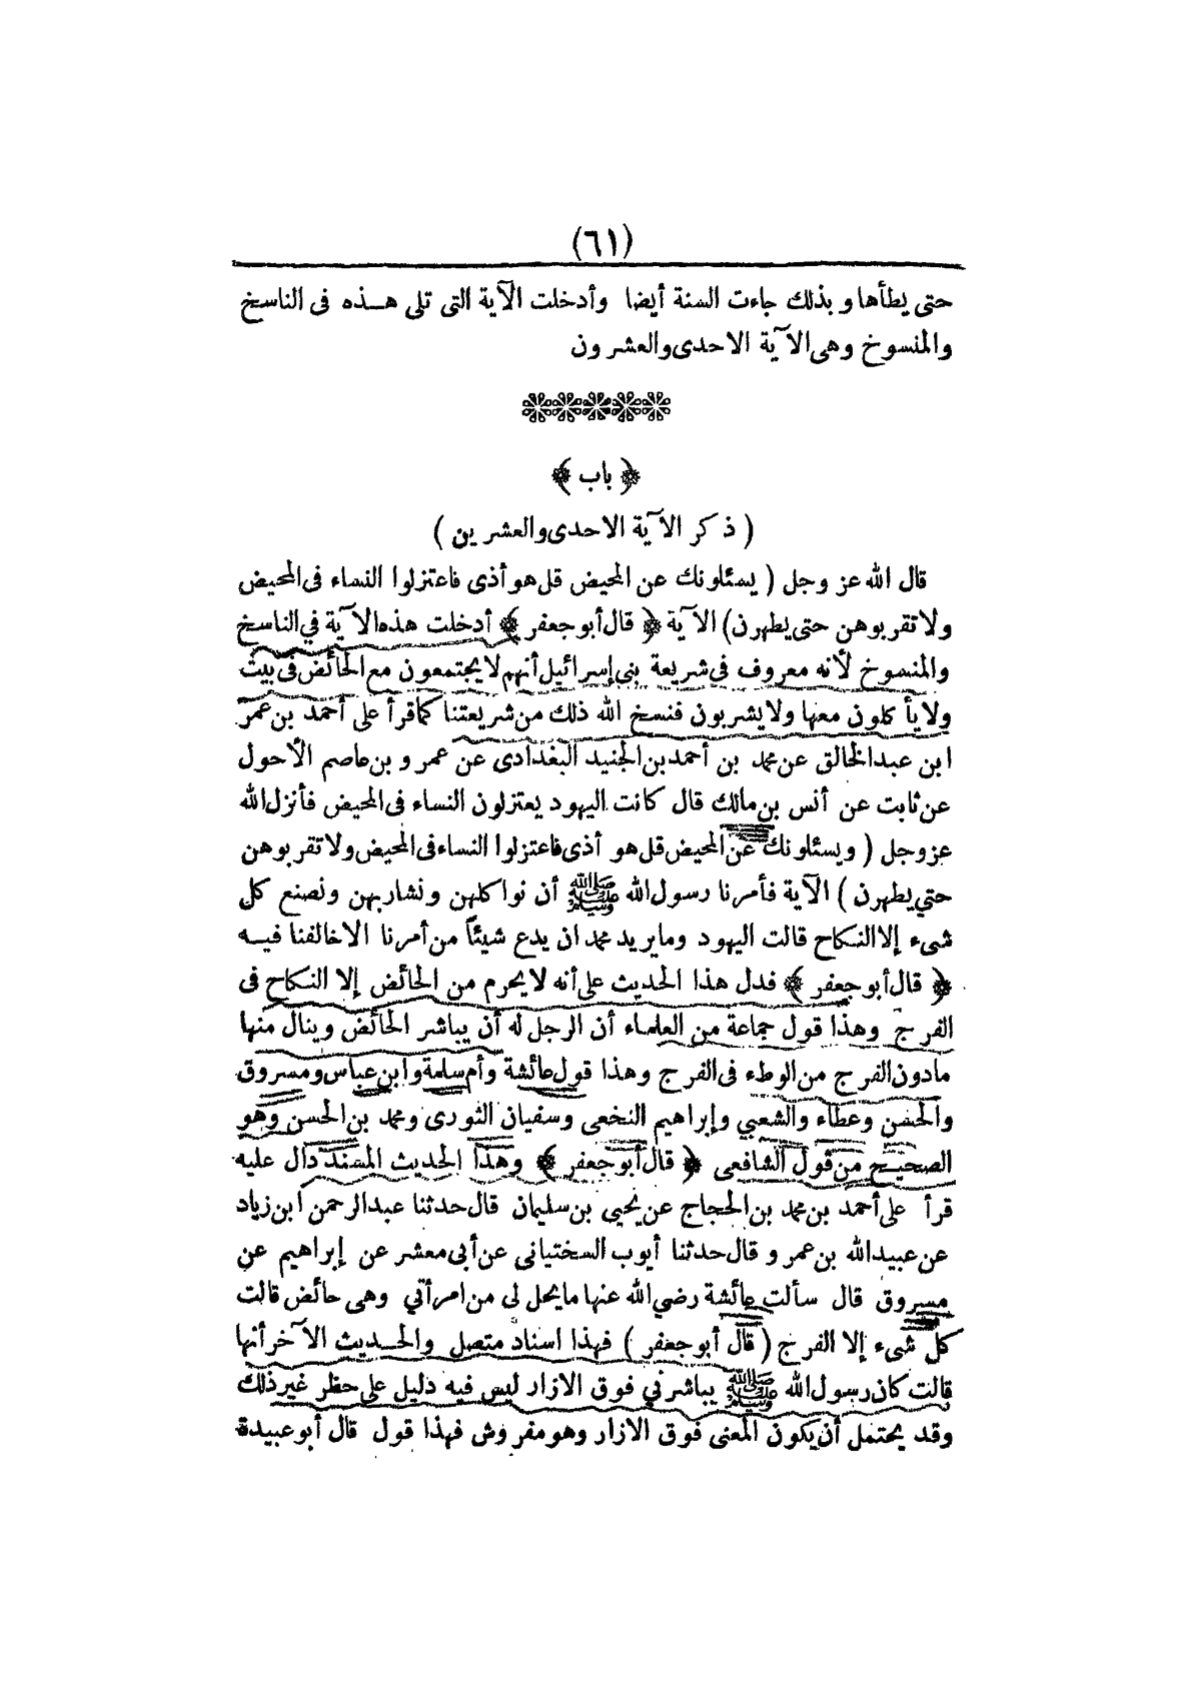 (٦١)
حتى يطأها وبذلك جاءت السنة أيضا وأدخلت الآية التى تلى هـذه فى الناسخ
والمنسوخ وهى الآية الاحدى والعشرون
﴿ باب ﴾
( ذكر الآية الاحدى والعشرين )
قال الله عز وجل ( يسئلونك عن المحيض قل هو أذى فاعتزلوا النساء فى المحيض
ولا تقربوهن حتى يطهرن) الآية ﴿ قال أبو جعفر ﴾ أدخلت هذه الآية في الناسخ
والمنسوخ لأنه معروف فى شريعة بنى إسرائيل أنهم لا يجتمعون مع الحائض فى بيت
ولا يأكلون معها ولا يشربون فنسخ الله ذلك من شريعتنا كما قرأ على أحمد بن عمر
ابن عبد الخالق عن محمد بن أحمد بن الجنيد البغدادى عن عمرو بن عاصم الأحول
عن ثابت عن أنس بن مالك قال كانت اليهود يعتزلون النساء فى المحيض فأنزل الله
عز وجل ( ويسئلونك عن المحيض قل هو أذى فاعتزلوا النساء فى المحيض ولا تقربوهن
حتي يطهرن ) الآية فأمرنا رسول الله ﷺ أن نواكلهن ونشاربهن ونصنع كل
شىء إلا النكاح قالت اليهود وما يريد محمد ان يدع شيئاً من أمرنا الا خالفنا فيـه
﴿ قال أبو جعفر ﴾ فدل هذا الحديث على أنه لا يحرم من الحائض إلا النكاح فى
الفرج وهذا قول جماعة من العلماء أن الرجل له أن يباشر الحائض وينال منها
مادون الفرج من الوطء فى الفرج وهذا قول عائشة وأم سلمة وابن عباس ومسروق
والحسن وعطاء والشعبي وإبراهيم النخعى وسفيان الثورى ومحمد بن الحسن وهو
الصحيح من قول الشافعى ﴿ قال أبو جعفر ﴾ وهذا الحديث المسند دال عليه
قرأ على أحمد بن محمد بن الحجاج عن يحيى بن سليمان قال حدثنا عبد الرحمن ابن زياد
عن عبيد الله بن عمرو قال حدثنا أيوب السختيانى عن أبى معشر عن إبراهيم عن
مسروق قال سألت عائشة رضي الله عنها ما يحل لى من امرأتي وهى حائض قالت
كل شىء إلا الفرج ( قال أبو جعفر ) فهذا اسناد متصل والحـديث الآخر أنها
قالت كان رسول الله ﷺ يباشرني فوق الازار ليس فيه دليل على حظر غير ذلك
وقد يحتمل أن يكون المعنى فوق الازار وهو مفروش فهذا قول قال أبو عبيدة